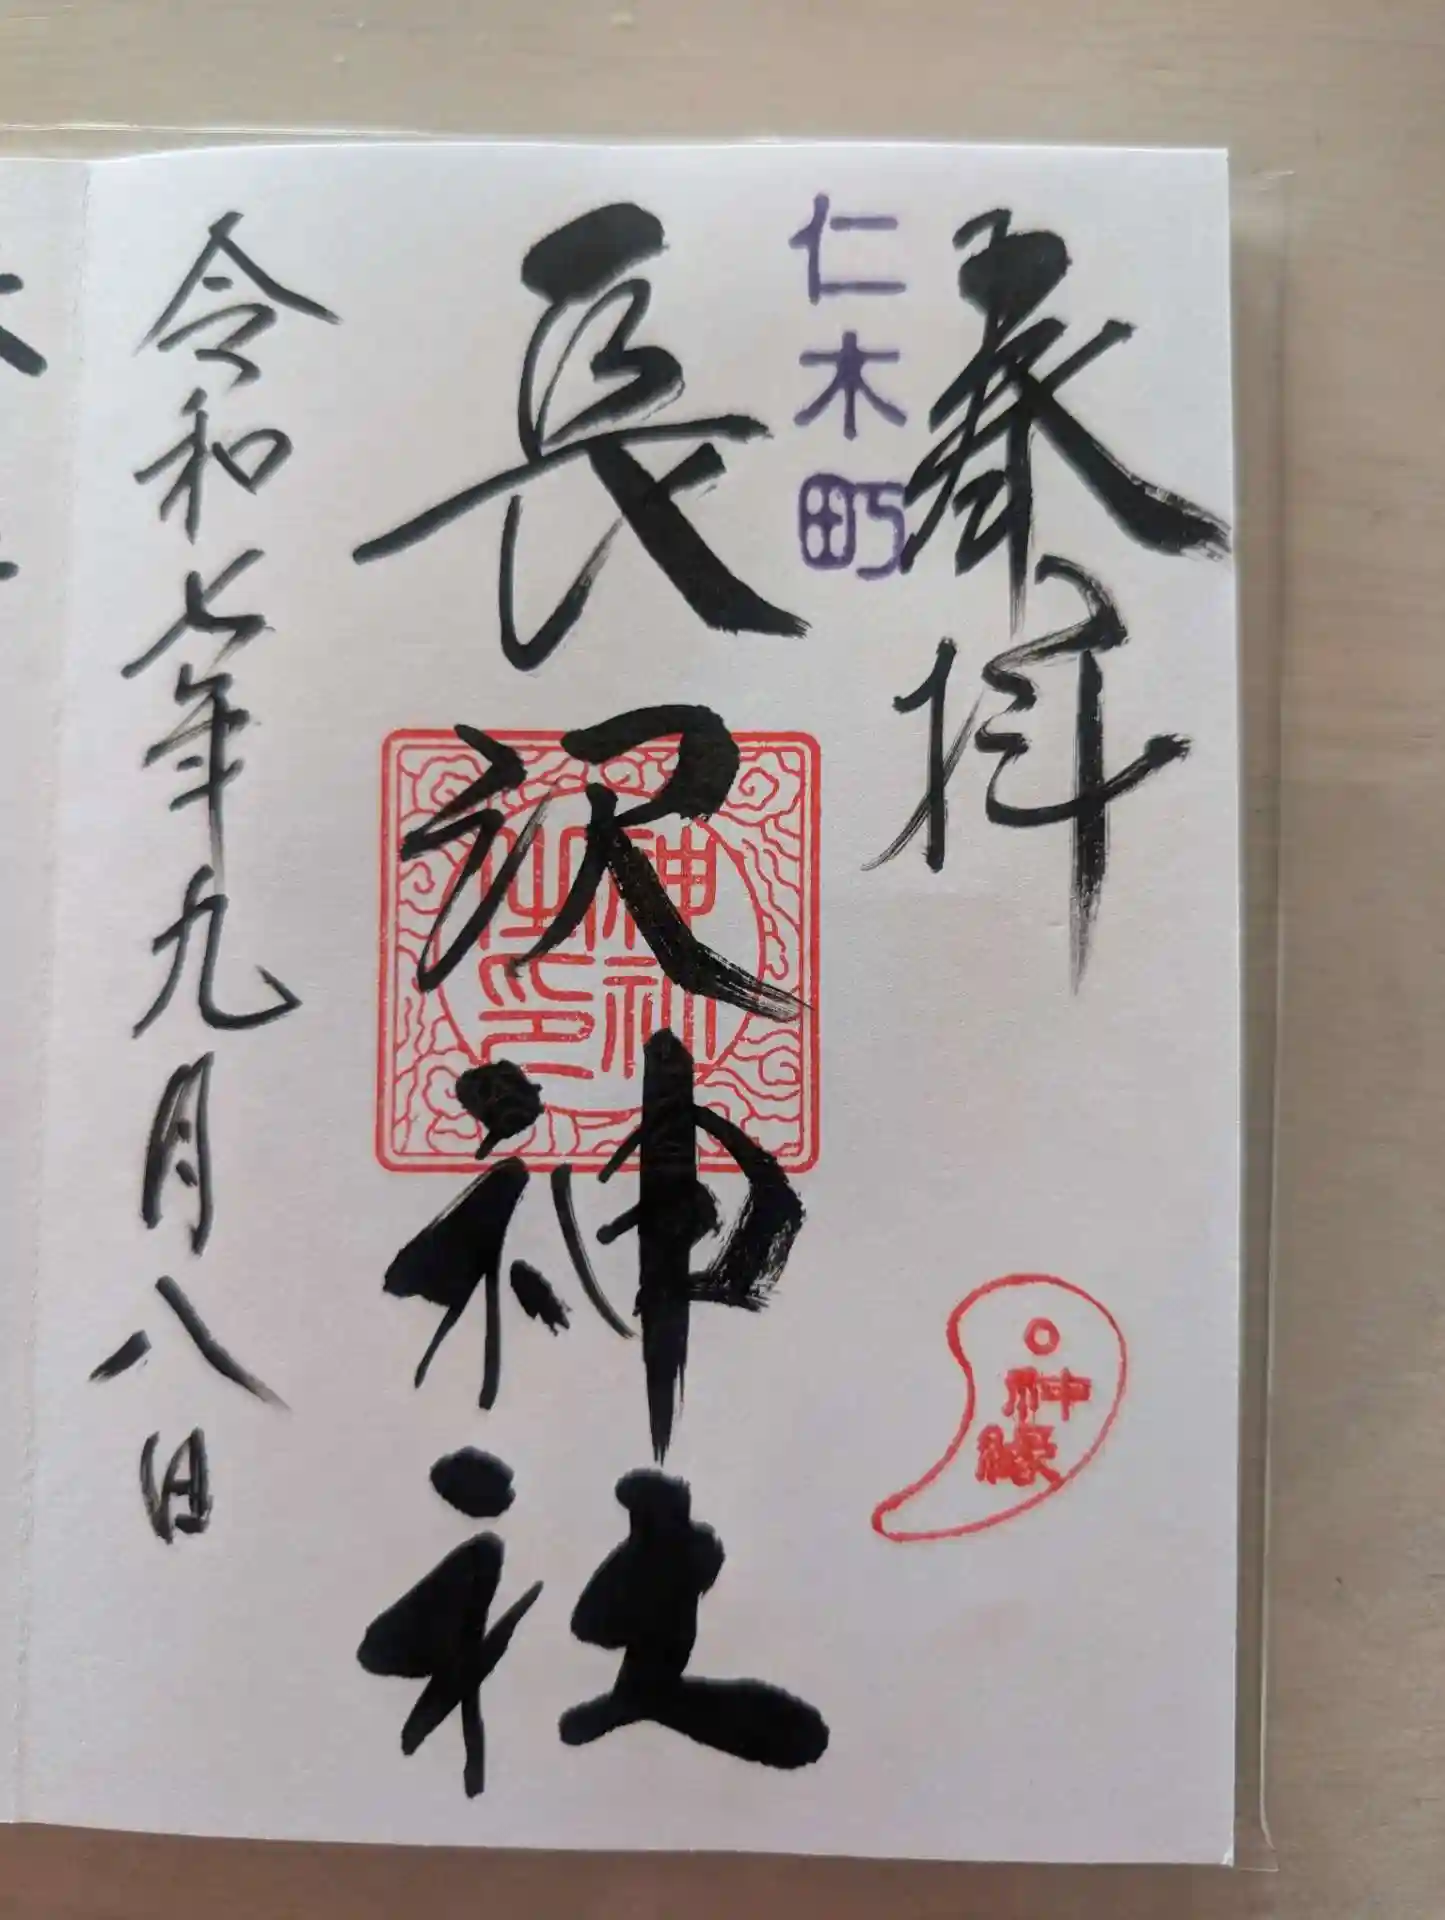 奉拝
仁木町
長沢神社
神社之印
神縁
令和七年九月八日